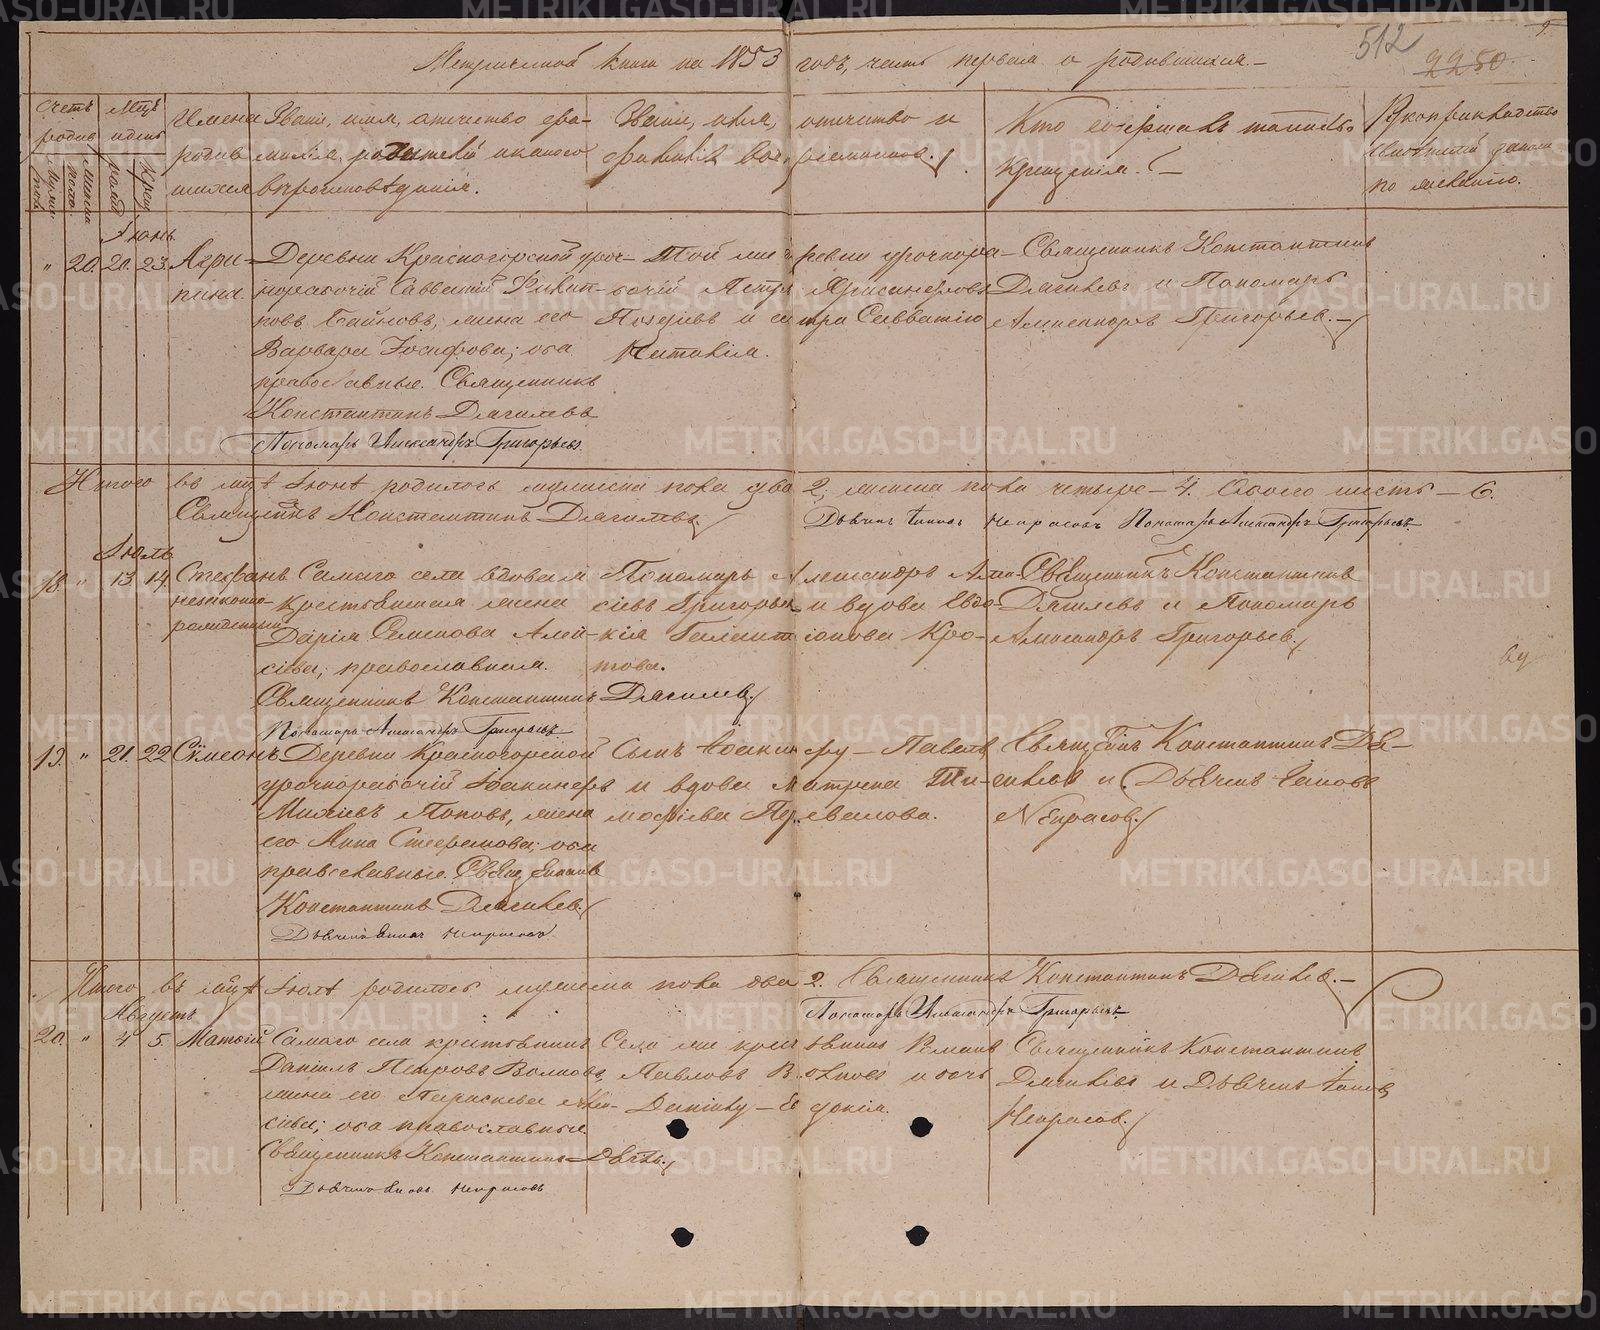 512
2250
Метрической книги на 1853 годъ, часть первая о родившихся.
Счетъ родив.
Мужеска
пола.
женска
Мѣцъ и день
рожд.
крещ.
Имена родившихся
Званіе, имя, отечество, фамилія родителей и какого вѣроисповѣданія.
Званіе, имя, отечество и фамилія воспріемниковъ.
Кто совершалъ таинство крещенія.
Рукоприкладство свидѣтелей записи по желанію.
Іюнь
" 20. 20. 23. Агри-
пина.
Деревни Красногорской уроч-
норабочій Савватій
жена его
Варвара Іосифова; оба
православные. Священникъ
Константинъ Дягилевъ
Пономарь Александръ Григорьевъ
Той же деревни урочнора-
бочій Петръ
и сестра Савватію
Наталія.
Священникъ Константинъ
Дягилевъ и Пономарь
Александръ Григорьевъ.
Итого въ мцѣ Іюнѣ родилось мужеска пола два 2, женска пола четыре - 4. Обоего шесть - 6.
Священникъ Константинъ Дягилевъ
Дьячекъ Іаковъ Некрасовъ Пономарь Александръ Григорьевъ
Іюль
18. " 13. 14. Стефанъ
незаконно-
рожденный
Самаго села вдовая
крестьянская жена
Дарія Семенова Алек-
сіева; православная.
Священникъ Константинъ Дягилевъ
Пономарь Александръ Григорьевъ
Пономарь Александръ Алек-
сіевъ Григорьевъ и вдова Евдо-
кія Галактіонова Кро-
това.
Священникъ Константинъ
Дягилевъ и Пономарь
Александръ Григорьевъ.
19. " 21. 22. Сѵмеонъ
Деревни Красногорской
урочнорабочій
Поповъ, жена
его Анна Стефанова; оба
православные. Священникъ
Константинъ Дягилевъ.
Дьячекъ Іаковъ Некрасовъ
Сынъ Павелъ
и вдова Матрена Ти-
мофіева
Священникъ Константинъ Дя-
гилевъ и Дьячекъ Іаковъ
Некрасовъ.
Итого въ мцѣ Іюлѣ родилось мужеска пола два 2. Священникъ Константинъ Дягилевъ.
Пономарь Александръ Григорьевъ
Августъ
20. " 4 5. Матѳій
Самаго села крестьянинъ
Даніилъ Петровъ Волковъ,
жена его Параскева Алек-
сіева; оба православные.
Священникъ Константинъ Дягилевъ.
Дьячекъ Іаковъ Некрасовъ
Села же крестьянинъ Романъ
Павловъ Волковъ и дочь
Даніилу - Евдокія.
Священникъ Константинъ
Дягилевъ и Дьячекъ Іаковъ
Некрасовъ.
METRIKI.GASO-URAL.RU